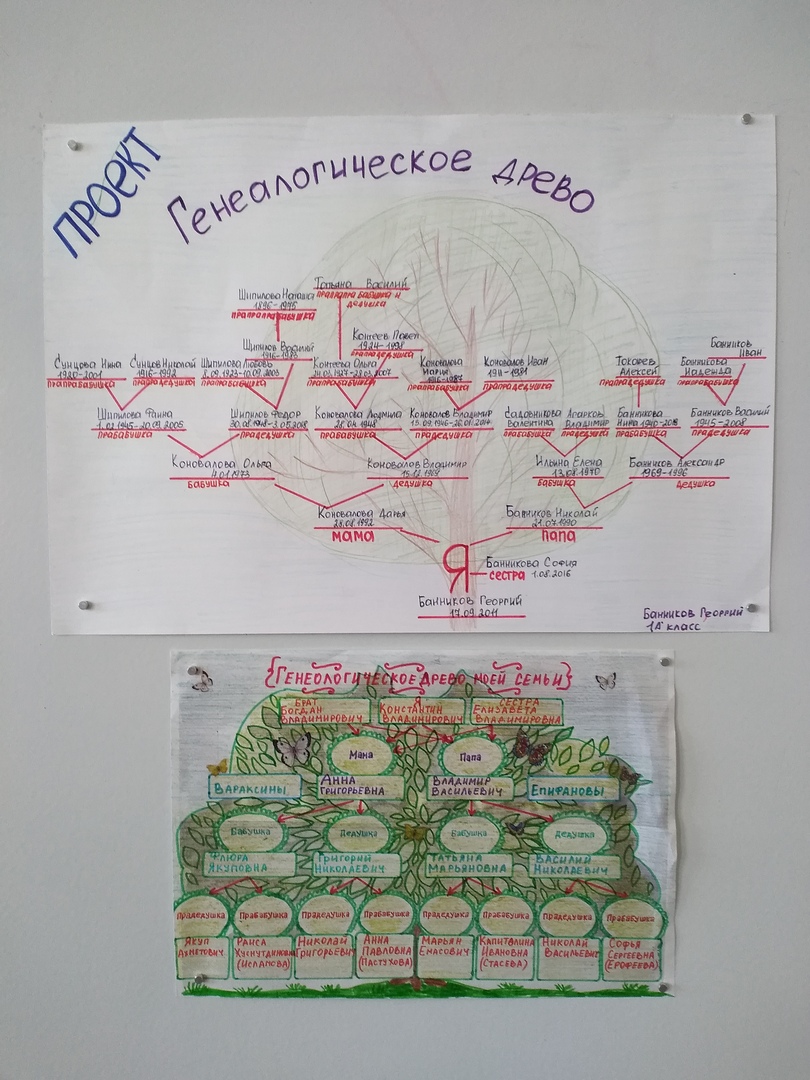 ПРОЕКТ
Генеалогическое древо
Татьяна Василий
прапрапрабабушка и
дедушка
Шипилова Наташа
1896-1975
прапрапрабабушка
Шипилов Василий
Контеев Павел
1924-1998
прапрадедушка
Банников
Иван
Сунцова Нина
прапрабабушка
Сунцов Николай
1916-1992
прапрадедушка
Шипилова Любовь
прапрабабушка
Контеева Ольга
прапрабабушка
Коновалова
Мария
прапрабабушка
Коновалов Иван
1911-1981
прапрадедушка
Токарев
Алексей
прапрадедушка
Банникова
Надежда
прапрабабушка
Шипилова Фаина
1.02.1945-20.09.2005
прабабушка
Шипилов Федор
прадедушка
Коновалова Людмила
28.04.1948
прабабушка
Коновалов Владимир
прадедушка
Садовникова
Валентина
прабабушка
Агарков
Владимир
прадедушка
Банникова
прабабушка
Банников Василий
1945-2008
прадедушка
Коновалова Ольга
4.01.1973
бабушка
Коновалов Владимир
дедушка
Ильина Елена
13.08.1970
бабушка
Банников Александр
1969-1996
дедушка
Коновалова Дарья
28.08.1992
мама
Банников Николай
21.07.1990
папа
Я
Банникова София
сестра 1.08.2016
Банников Георгий
17.09.2011
Банников Георгий
1А класс
{Генеологическое древо моей семьи}
Брат
Богдан
Владимирович
Я
Константин
Владимирович
Сестра
Елизавета
Владимировна
Мама
Папа
Вараксины
Анна
Григорьевна
Владимир
Васильевич
Епифановы
Бабушка
Дедушка
Бабушка
Дедушка
Флюра
Якуповна
Григорий
Николаевич
Татьяна
Марьяновна
Василий
Николаевич
Прадедушка
Прабабушка
Прадедушка
Прабабушка
Прадедушка
Прабабушка
Прадедушка
Прабабушка
Якуп
Ахметович
Раиса
(Ислапова)
Николай
Григорьевич
Анна
Павловна
(Пастухова)
Марьян
Енасович
Капиталина
Ивановна
(Стасева)
Николай
Васильевич
Софья
Сергеевна
(Ерофеева)